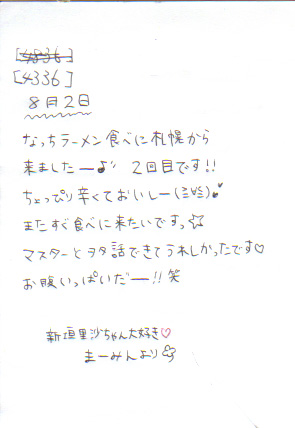 [4336]
8月2日
なっちラーメン食べに札幌から
来ましたー♪ 2回目です!!
ちょっぴり辛くておいしー(≧∀≦)♪
またすぐ食べに来たいですっ☆
マスターとヲタ話できてうれしかったです♡
お腹いっぱいだー!! 笑
新垣里沙ちゃん大好き♡
まーみんより☆